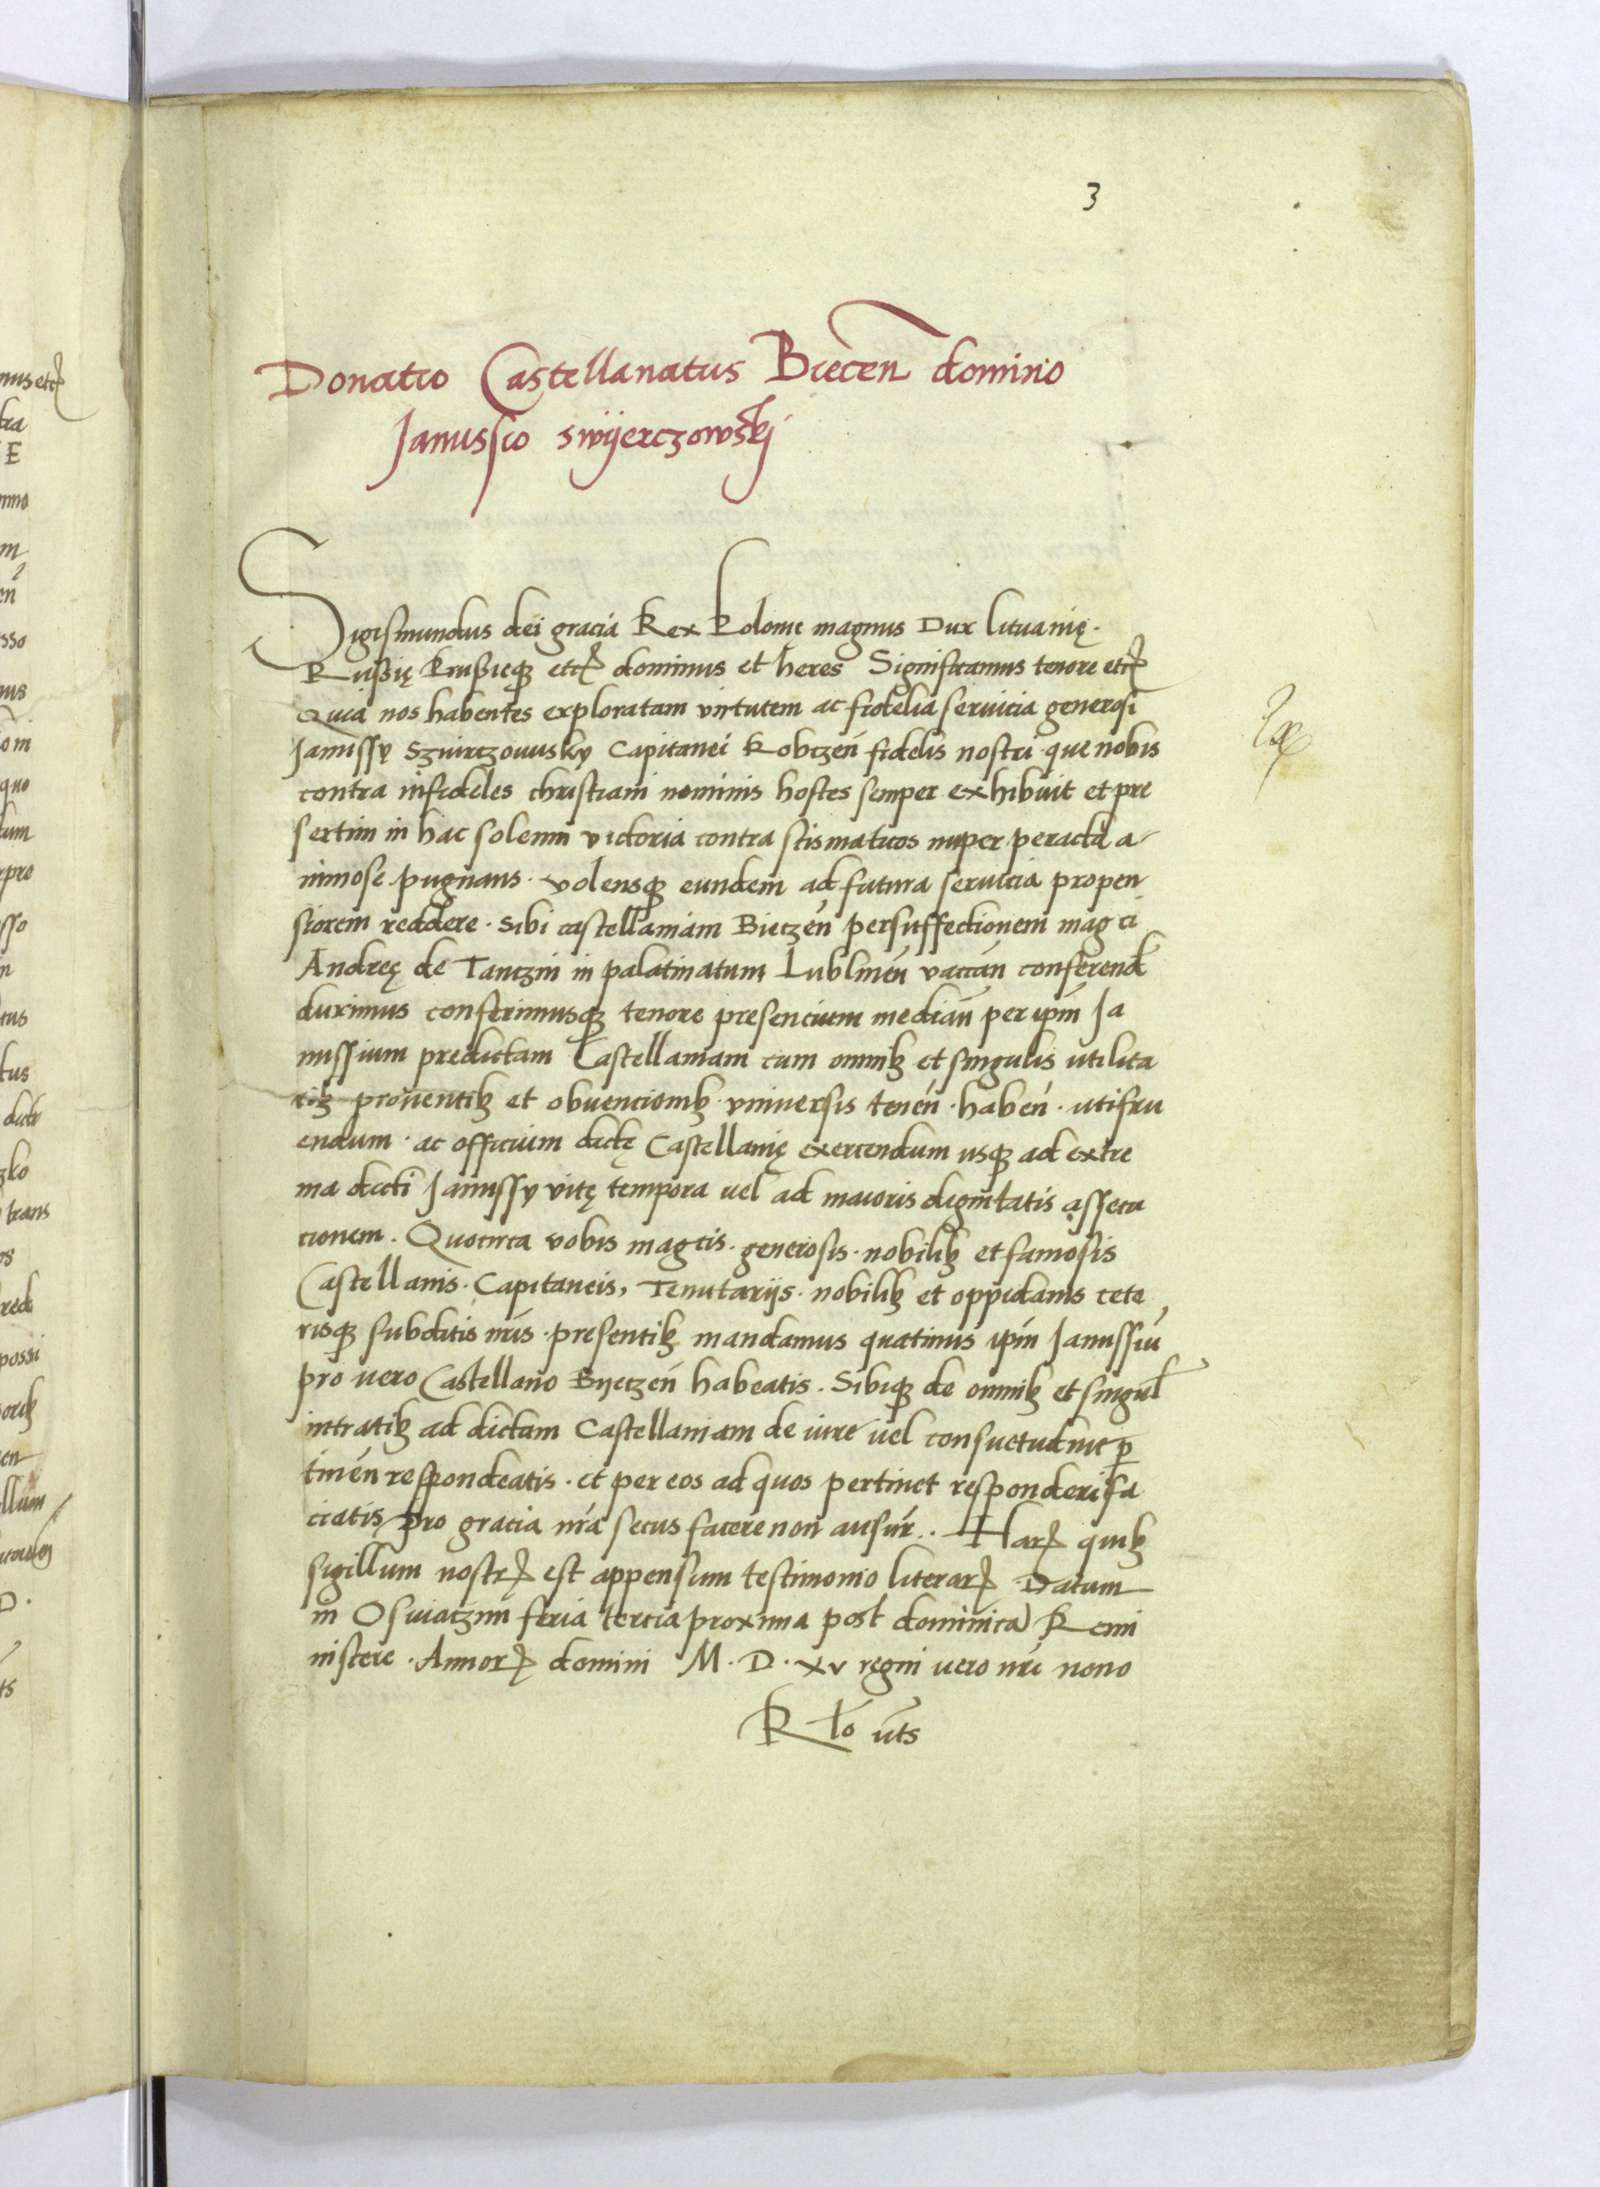 3
Donatio Castellanatus Biecen̄ domino
Janussio swyerczowskj
Sigismundus dei gracia Rex Polonie magnus Dux lituanię·
Russię prussieqꝫ etcꝝ dominus et heres Significamus tenore etcꝝ
Quia nos habentes exploratam virtutem ac fidelia servicia generosi
Janussy Szvirczovusky Capitanei Robczen̄ fidelis nostri que nobis
contra infideles christiani nominis hostes semper exhibuit et pre
sertim in hac solenni victoria contra scismaticos nuper peracta a-
nimose pugnans· volensqꝫ eundem ad futura servicia propen
siorem reddere· sibi castellaniam Bieczen̄ per suffectionem magci
Andreę de Tanczin in palatinatum Lublinen̄ vaccan̄ conferend̄
duximus conferimusqꝫ tenore presencium median̄ per ip̄m Ja
nussium predictam Castellaniam cum omnibꝫ et singulis utilita
tibꝫ proventibꝫ et obvencionibꝫ· vniversis tenen̄· haben̄· utifru
endum· ac officium dictę Castellanię exercendum usqꝫ ad extre
ma dicti Janussy vitę tempora uel ad maioris dignitatis assecu
cionem. Quocirca vobis magcis· generosis· nobilibꝫ et famosis
Castellanis· Capitaneis, Tenutarijs· nobilibꝫ et oppidanis cete
risqꝫ subditis nr̄is· presentibꝫ mandamus quatinus ip̄m Janussiū
pro vero Castellano Byeczen̄ habeatis. Sibiqꝫ de omnibꝫ et singul̄
intratibꝫ ad dictam Castellaniam de iure uel consuetudine ꝑ
tinen̄ respondeatis· et per eos ad quos pertinet responderi fa
ciatis pro gracia nr̄a secus facere non ausur̄.· Harꝝ quibꝫ
sigillum nostrꝝ est appensum testimonio literarꝝ· Datum
in Osviaczim feria tercia proxima post dominicā Remi
niscere· Annorꝝ domini M·D·xv regni vero nr̄i nono
R lō ūts